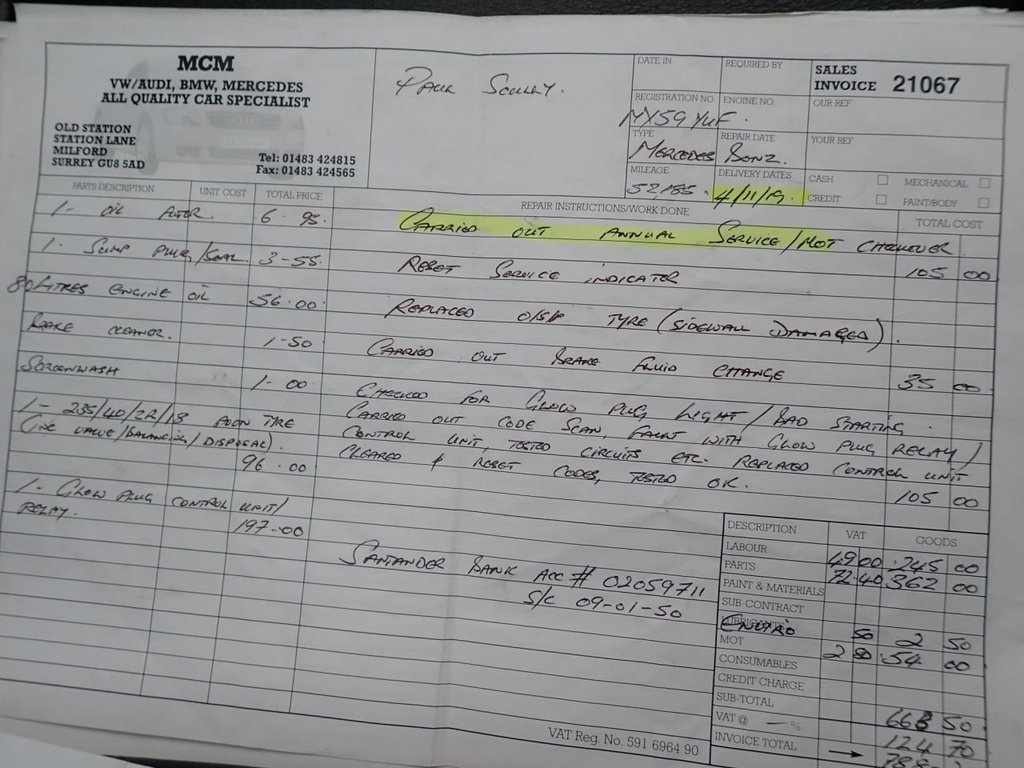 MCM
VW/AUDI, BMW, MERCEDES
ALL QUALITY CAR SPECIALIST
OLD STATION
STATION LANE
MILFORD
SURREY GU8 5AD
Tel: 01483 424815
Fax: 01483 424565
PAUL SCULLY.
DATE IN
REQUIRED BY
SALES INVOICE 21067
REGISTRATION NO
ENGINE NO
OUR REF
MX59 YUF.
TYPE
REPAIR DATE
YOUR REF
MERCEDES BENZ.
MILEAGE
DELIVERY DATES
CASH
MECHANICAL
52,185.
4/11/19.
CREDIT
PAINT/BODY
PARTS DESCRIPTION
UNIT COST
TOTAL PRICE
REPAIR INSTRUCTIONS/WORK DONE
TOTAL COST
1- OIL FILTER. 6.95
1. SUMP PLUG/SEAL 3-55
LITRES ENGINE OIL 56.00
BRAKE CLEANER. 1-50
SCREENWASH 1.00
1- 235/40/ZR/18 TYRE
(INC VALVE/BALANCING/DISPOSAL).
96.00
1- GLOW PLUG CONTROL UNIT/
RELAY. 197-00
CARRIED OUT ANNUAL SERVICE/MOT CHECKOVER 105 00
RESET SERVICE INDICATOR
REPLACED O/S/F TYRE (SIDEWALL DAMAGED).
CARRIED OUT BRAKE FLUID CHANGE 35 00
CHECKED FOR GLOW PLUG LIGHT/BAD STARTING.
CARRIED OUT CODE SCAN, FAULT WITH GLOW PLUG RELAY/
CONTROL UNIT, TESTED CIRCUITS ETC. REPLACED CONTROL UNIT
CLEARED & RESET CODES, TESTED OK. 105 00
SANTANDER BANK ACC # 02059711
S/C 09-01-50
DESCRIPTION VAT GOODS
LABOUR 49 00 245 00
PARTS 72 40 362 00
PAINT & MATERIALS
SUB-CONTRACT
ENVIRO 50 2 50
MOT 54 00
CONSUMABLES
CREDIT CHARGE
SUB-TOTAL 663 50
VAT @ — % 124 70
INVOICE TOTAL
VAT Reg. No. 591 6964 90